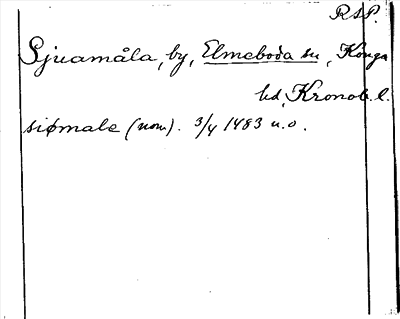 RSP.
Sjuamåla, by, Elmeboda sn, Konga
hd, Kronob. l.
siømale (nom). 3/4 1483 u.o.